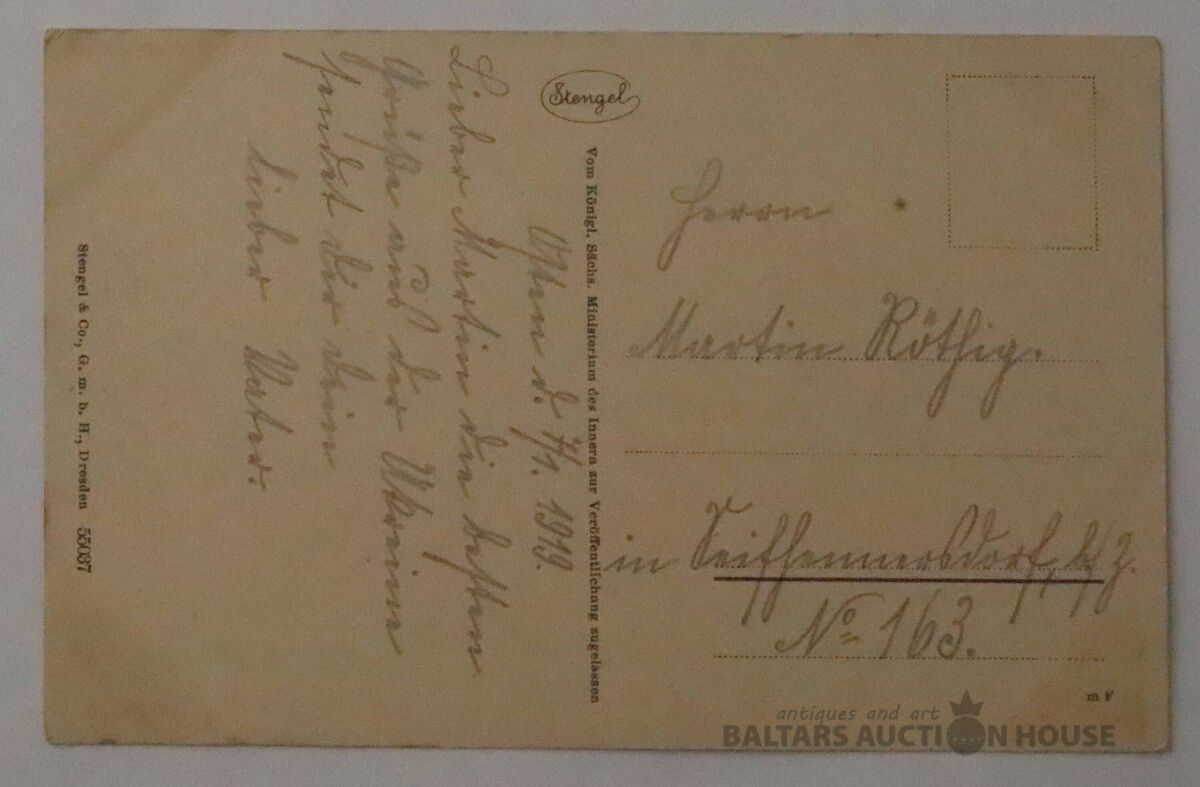 Stengel
Vom Königl. Sächs. Ministerium des Innern zur Veröffentlichung zugelassen
d. 7/1. 1919.
Lieber Martin die besten
Grüße aus der Ukraine
sendet dir dein
lieber Vater.
Stengel & Co., G. m. b. H., Dresden 55037
Herrn
Martin Röthig.
in Seifhennersdorf, b/Z.
No 163.
m F
antiques and art
BALTARS AUCTION HOUSE